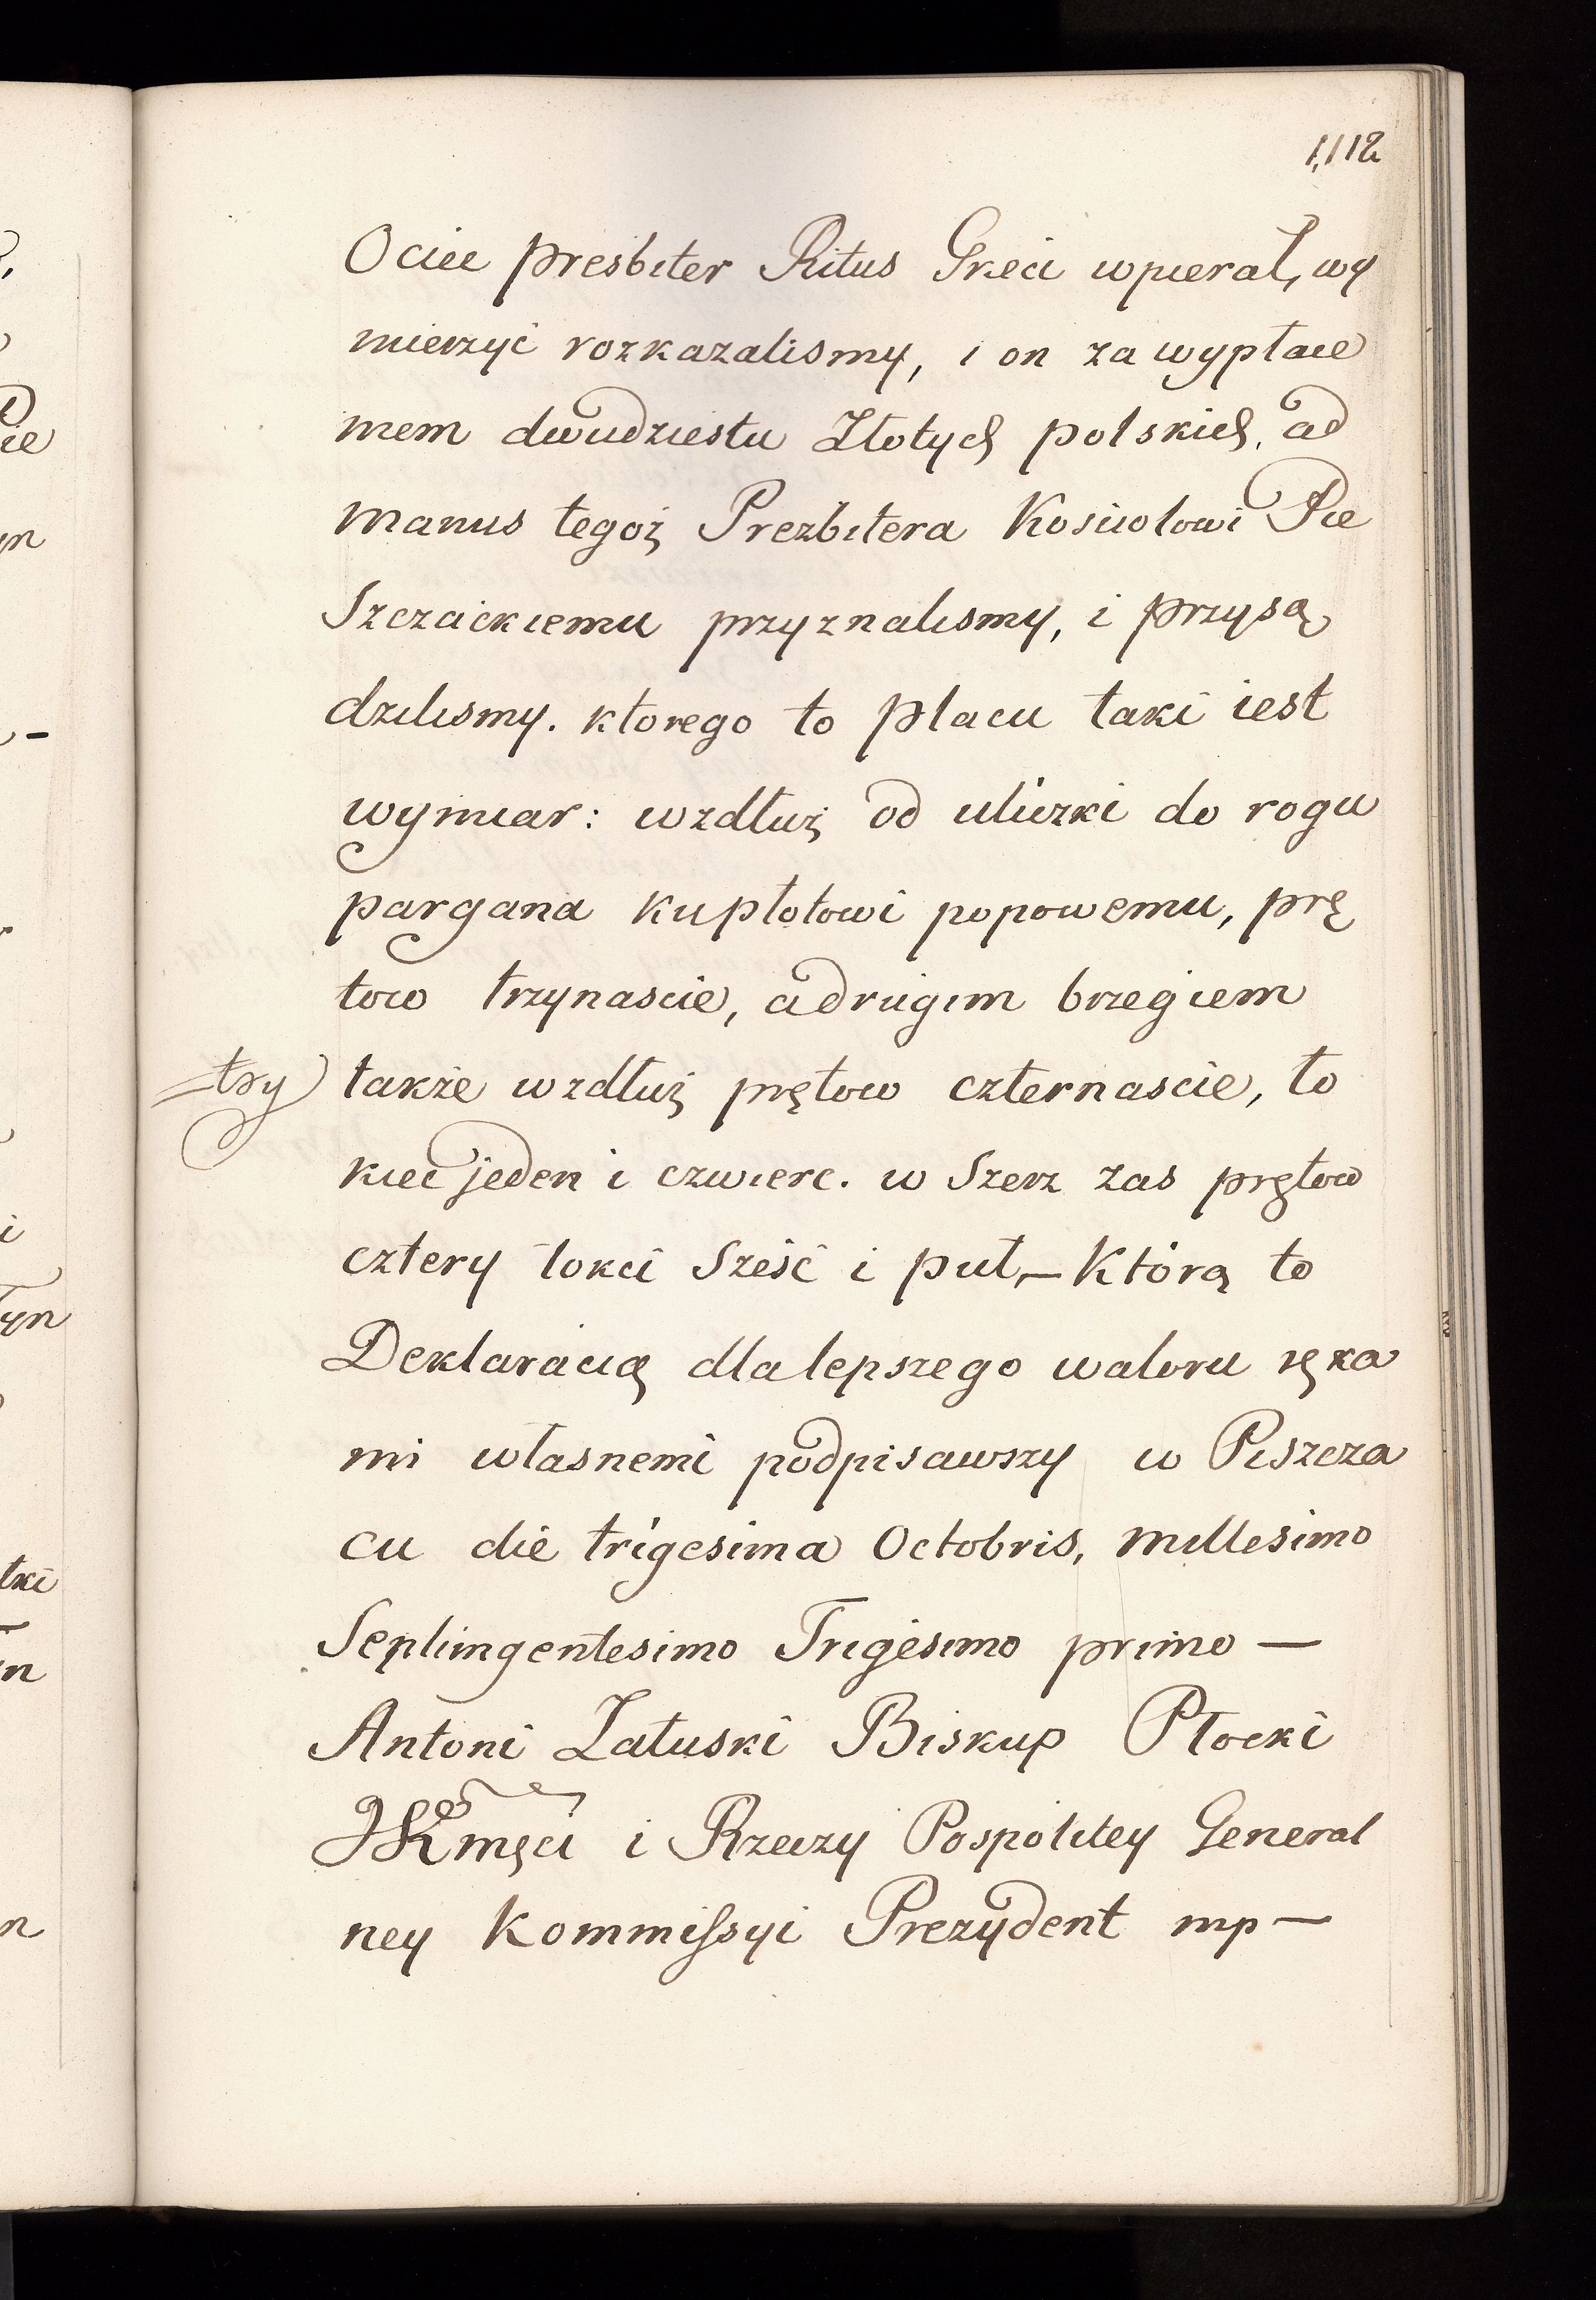 1,112
Ociec presbiter Ritus Greci wpierał, wy
mierzyć rozkazalismy, i on za wypłace
niem dwudziestu Złotych polskich, ad
manus tegoż Prezbitera Kosciołowi Pie
Szczackiemu przyznalismy, i przysą
dzilismy. ktorego to placu taki iest
wymiar: wzdłuż od uliczki do rogu
pargana ku płotowi popowemu, prę
tow trzynascie, a drugim brzegiem
=try także wzdłuż prętow czternascie, ło
kieć jeden i czwierc. w Szerz zas prętow
cztery łokci Sześć i puł,— Którą to
Deklaracią dla lepszego waloru ręka
mi własnemi podpisawszy w Piszcza
cu die trigesima Octobris, millesimo
Septingentesimo Trigesimo primo —
Antoni Załuski Biskup Płocki
JKmści i Rzeczy Pospolitey General
ney Kommissyi Prezydent mp—